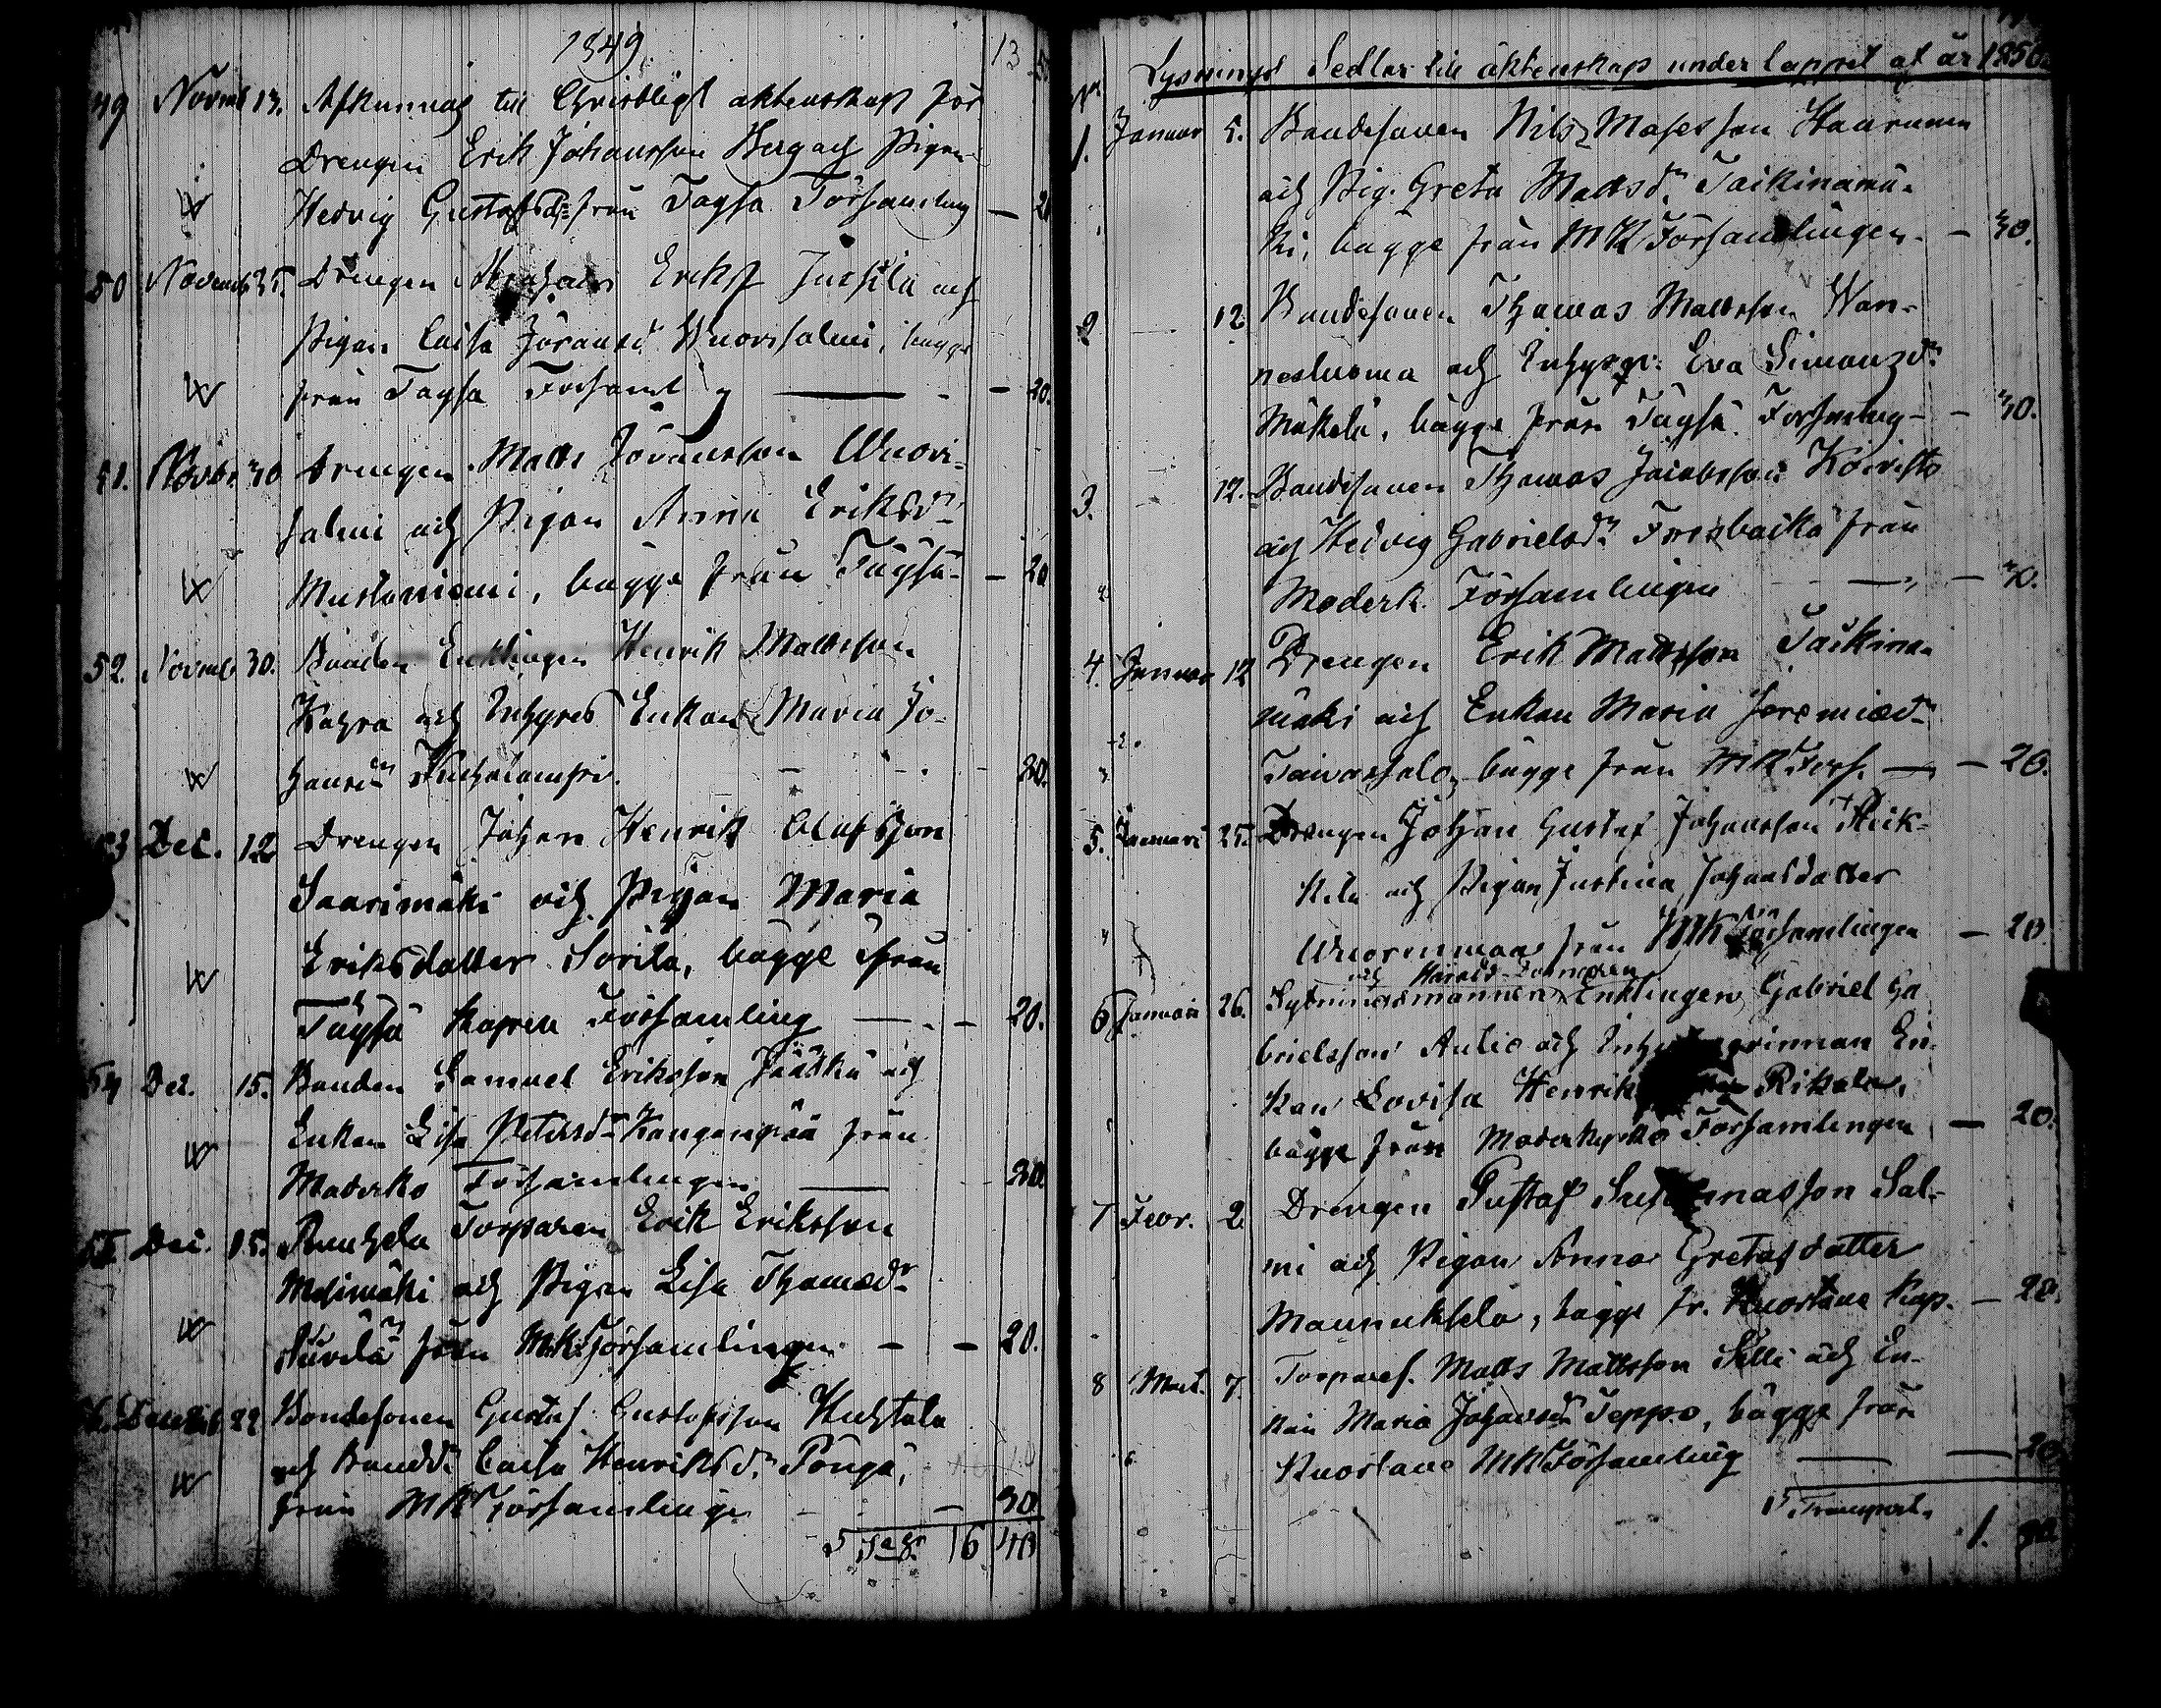 1849 13
49 Novmb 13. Afkunnas till Christligt äktenskap för
Drengen Erik Johansson Berg och Pigan
Hedvig Gustafsdr från Töysä Församling — 20
50 Novemb 25. Drengen Abraham Eriks Jussila och
Pigan Caisa Göransd Wuorisalmi, bägge
från Töysä Församl — 20.
51. Novbr 30 Drengen Matts Göransson Wuori-
salmi och Pigan Anna Eriksdr
Mustaniemi, bägge från Töysä — 20
52. Novmb 30. Bonden Enklingen Henrik Mattsson
och Inhyses Enkan Maria Jo-
hansdr 20.
53 Dec. 12 Drengen Johan Henrik Olofsson
Saarimäki och Pigan Maria
Eriksdotter Sorila, bägge från
Töysä Kapell Församling — 20.
54 Dec. 15. Bonden Samuel Eriksson Jääskä och
Enkan Lisa Petersdr Kanganpää från
Moderk. Församlingen — 30.
55 Dec. 15. Torparen Erik Eriksson
och Pigan Lisa Thomasdr
från MK Församlingen — 20.
56. Decemb 22 Bondesonen Gustaf Gustafsson Huhtala
och Bonded. Caisa Henriksdr
från MK Församlingen — 30
Sa 16 40
Lysnings Sedlar till äktenskap under loppet af år 1850
Nr
1. Januar 5. Bondesonen Nils Matsson
och Pig. Greta Mattsdr Taikinamä-
ki, bägge från MK Församlingen — 30.
2 12 Bondesonen Thomas Mattsson Wan-
nesluoma och Inhyses Eva Simonsdr
Mäkelä, bägge från Töysä Församling — 30.
3. 12. Bondesonen Thomas Jacobsson Koivisto
och Hedvig Gabrielsdr från
Moderk. Församlingen — 30.
4. Januar 12 Drengen Erik Mattsson Taikina-
mäki och Enkan Maria Jeremiædr
Taivassalo, bägge från MK Förs. — 20.
5. Januari 25. Drengen Johan Gustaf Johansson
och Pigan Justina Johansdotter
Wuorenmaa från MK Församlingen — 20
och Härads-Domaren
6 Januari 26. Sexmannen Enklingen Gabriel Ga
brielsson Autio och En-
kan Lovisa Henrik Rikala,
bägge från Moderkyrko Församlingen — 20.
7 Febr. 2 Drengen Gustaf Sal-
mi och Pigan Anna Gretasdotter
Maunuksela, bägge fr. Kuortane Kap. — 20.
8 Mart. 7. Torpares. Matts Mattsson Silli och En-
kan Maria Johansdr Teppo, bägge från
Kuortane MK Församling — 20
Transport. 1.